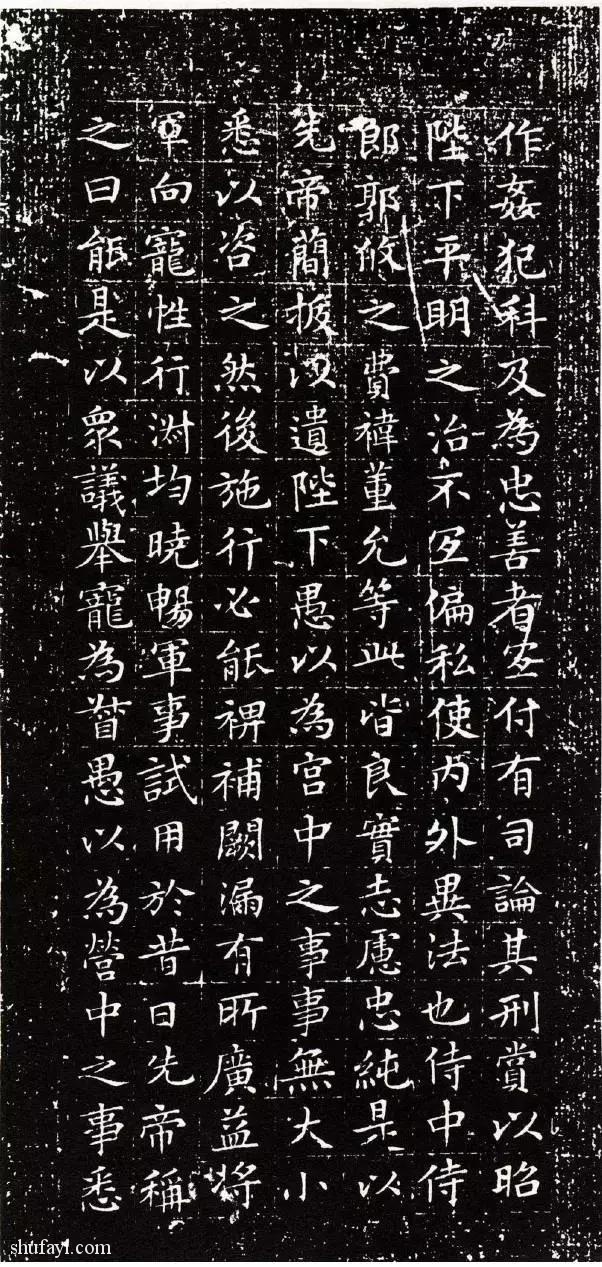 作姦犯科及為忠善者宜付有司論其刑賞以昭
陛下平明之治不宜偏私使內外異法也侍中侍
郎郭攸之費禕董允等此皆良實志慮忠純是以
先帝簡拔以遺陛下愚以為宮中之事事無大小
悉以咨之然後施行必能裨補闕漏有所廣益將
軍向寵性行淑均曉暢軍事試用於昔日先帝稱
之曰能是以眾議舉寵為督愚以為營中之事悉
shufayl.com